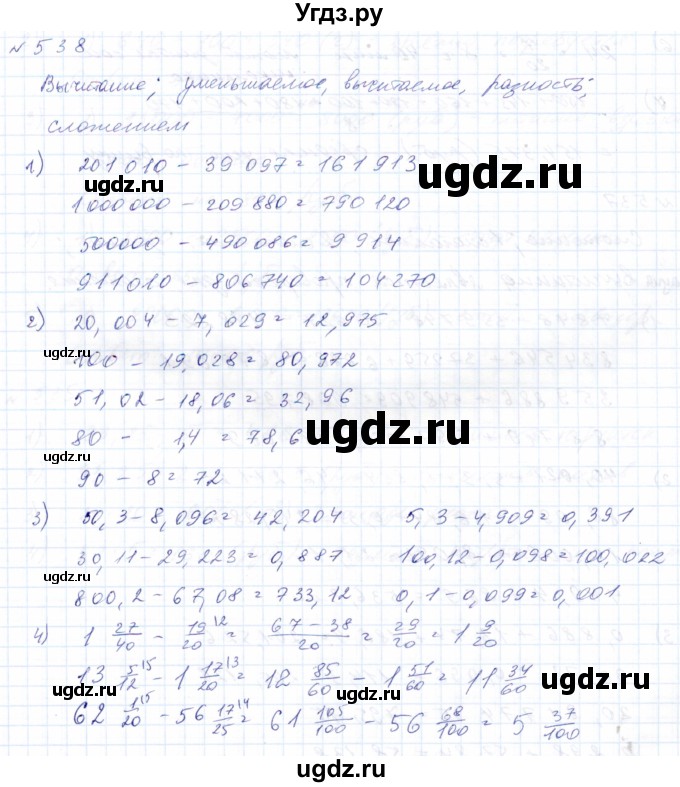 Угдз.ру
№ 538
Вычитание; уменьшаемое, вычитаемое, разность;
сложением
1) 201 010 - 39 097 = 161 913
ugdz.ru
ugdz.ru
1 000 000 - 209 880 = 790 120
500000 - 490 086 = 9 914
ugdz.ru
911 010 - 806 740 = 104 270
2) 20,004 - 7,029 = 12,975
ugdz.ru
100 - 19,028 = 80,972
51,02 - 18,06 = 32,96
ugdz.ru
ugdz.ru
80 - 1,4 = 78,6
90 - 8 = 72
3) 50,3 - 8,096 = 42,204 5,3 - 4,909 = 0,391
30,11 - 29,223 = 0,887 100,12 - 0,098 = 100,022
ugdz.ru
800,2 - 67,08 = 733,12 0,1 - 0,099 = 0,001
4) 1 27/40 - 19/20 \2 = 67-38/20 = 29/20 = 1 9/20
13 5/12 \5 - 1 17/20 \3 = 12 85/60 - 1 51/60 = 11 34/60
ugdz.ru
62 1/20 \5 - 56 17/25 \4 = 61 105/100 - 56 68/100 = 5 37/100
ugdz.ru